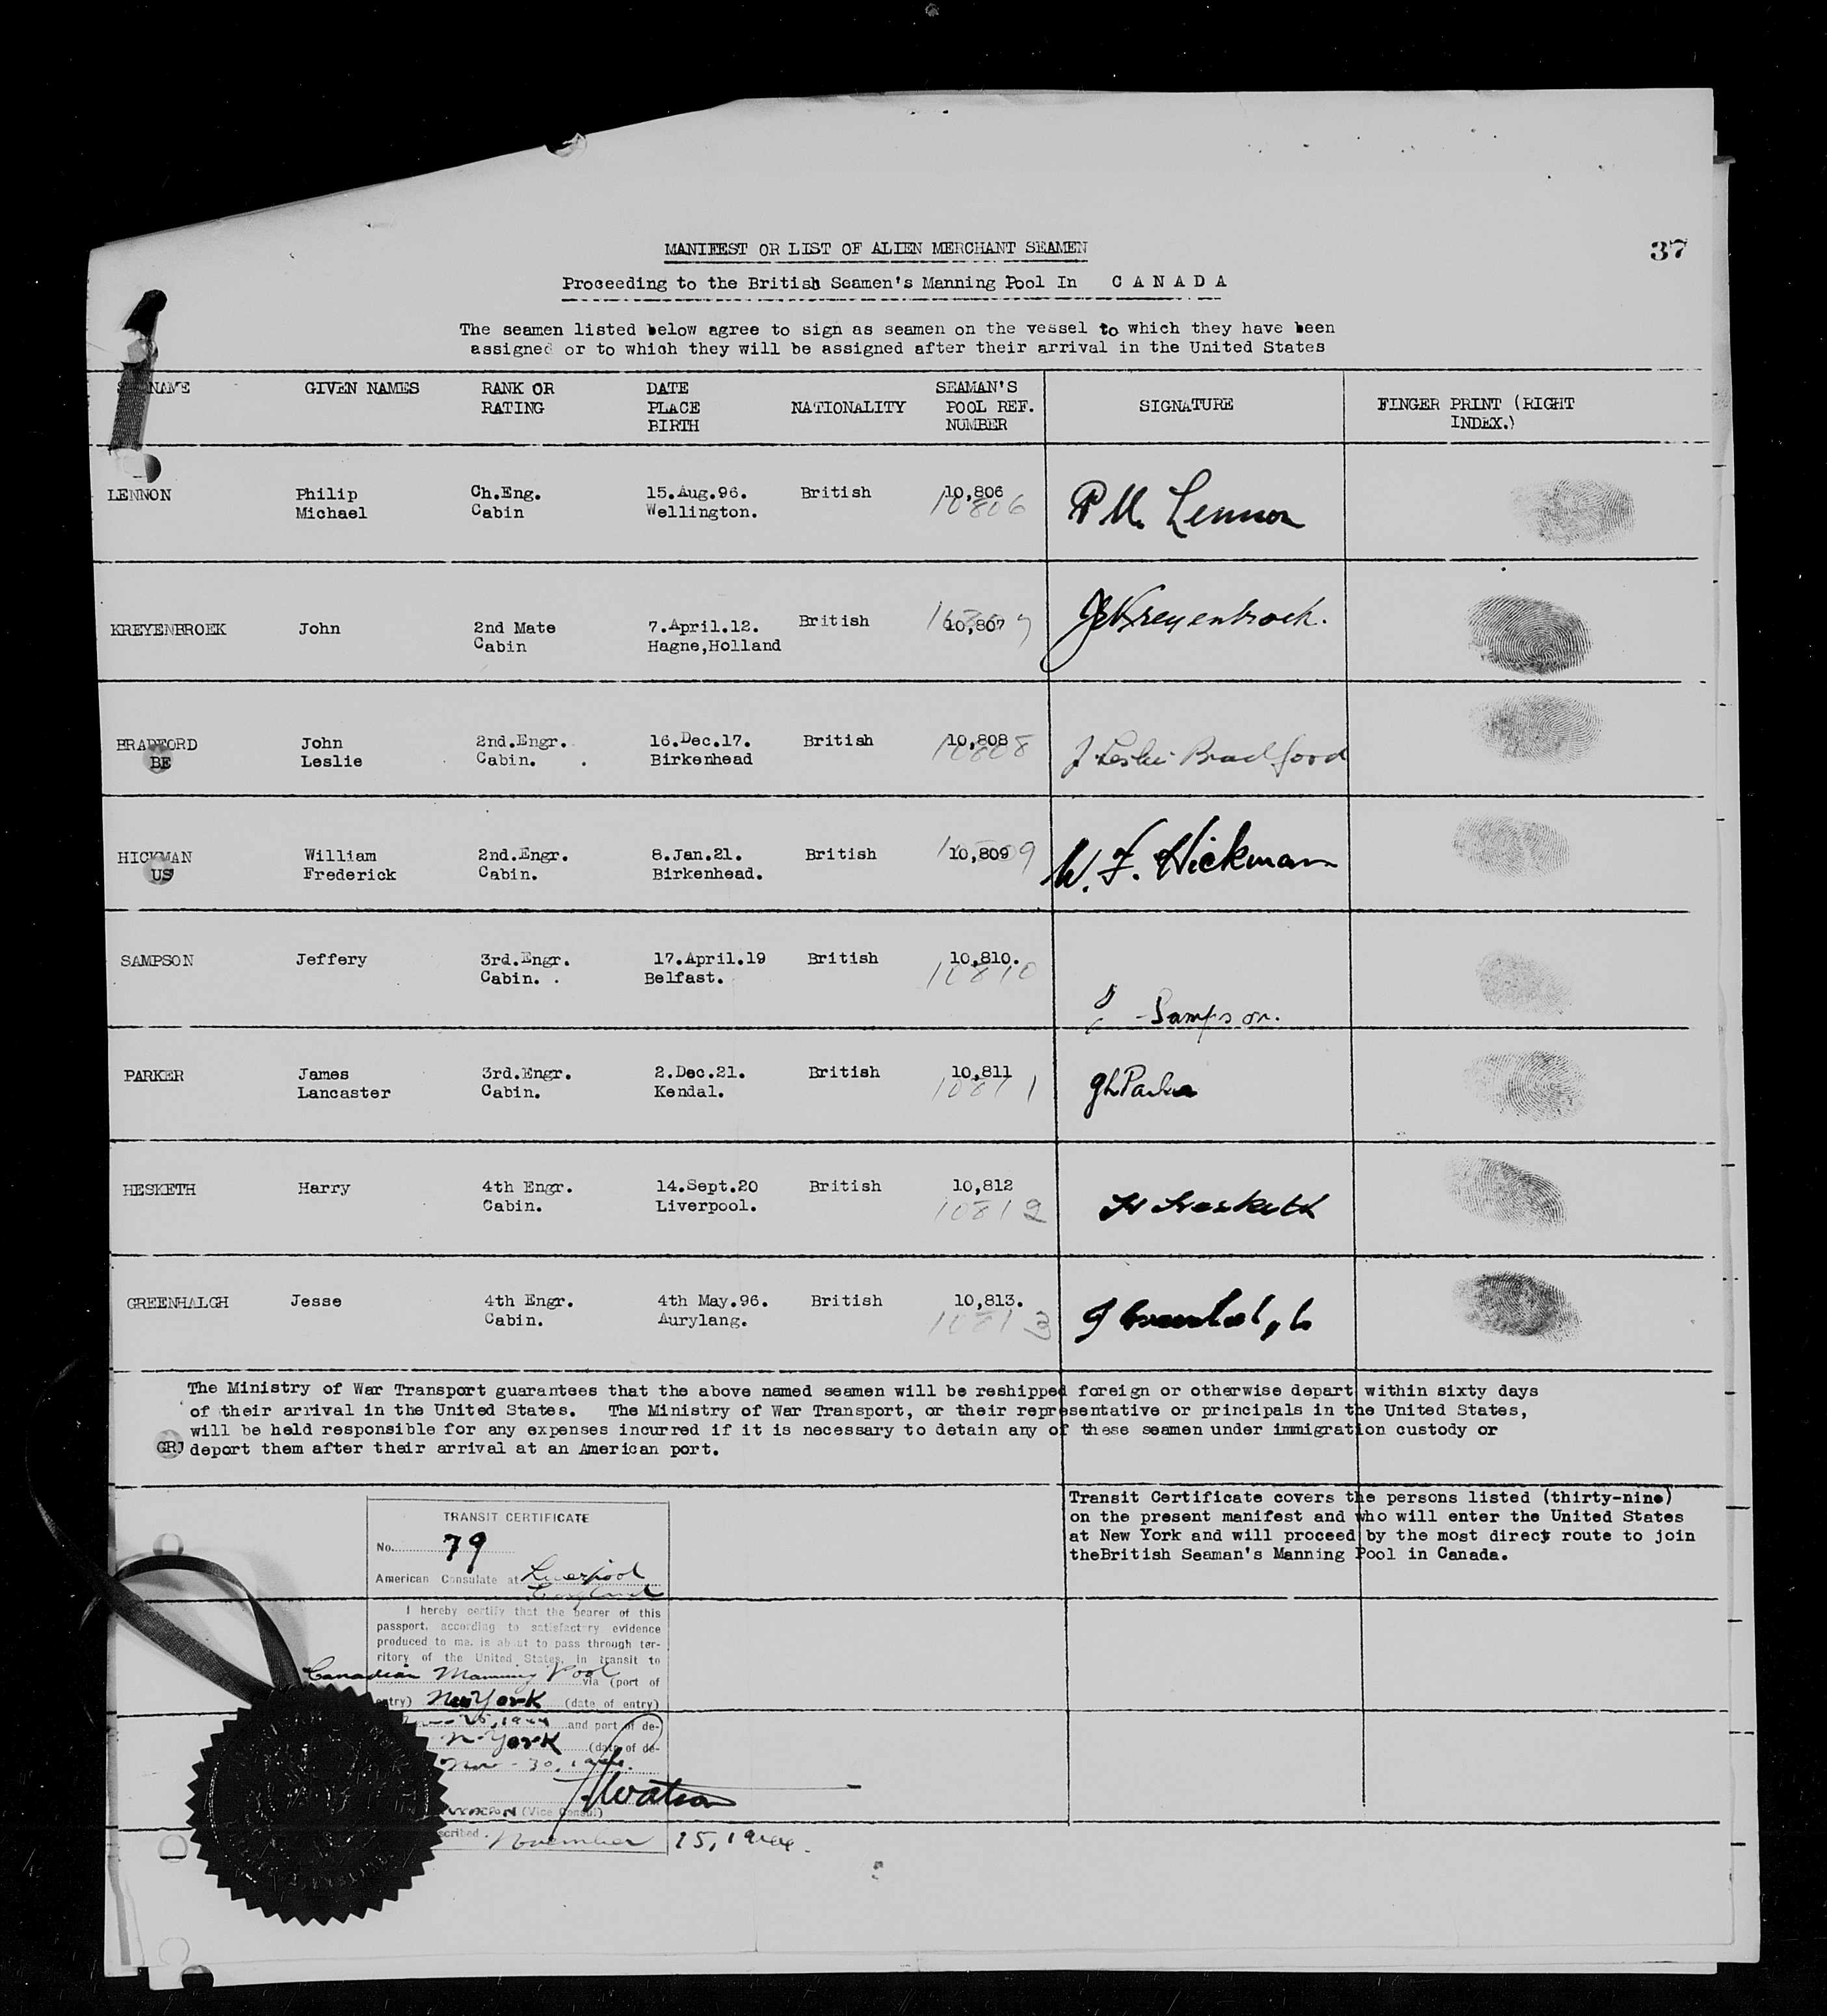 37
MANIFEST OR LIST OF ALIEN MERCHANT SEAMEN
Proceeding to the British Seamen's Manning Pool In C A N A D A
The seamen listed below agree to sign as seamen on the vessel to which they have been
assigned or to which they will be assigned after their arrival in the United States
NAME GIVEN NAMES RANK OR RATING DATE PLACE BIRTH NATIONALITY SEAMAN'S POOL REF. NUMBER SIGNATURE FINGER PRINT (RIGHT INDEX.)
LENNON Philip Ch.Eng. 15.Aug.96. British 10,806 P M. Lennon
Michael Cabin Wellington. 10806
KREYENBROEK John 2nd Mate 7.April.12. British 10,807 Kreyenbroek.
Cabin Hagne,Holland
BRADFORD John 2nd.Engr. 16.Dec.17. British 10,808 J Leslie Bradford
BE Leslie Cabin. Birkenhead 10808
HICKMAN William 2nd.Engr. 8.Jan.21. British 10,809 W. F. Hickman
US Frederick Cabin. Birkenhead.
SAMPSON Jeffery 3rd.Engr. 17.April.19 British 10,810. J Sampson.
Cabin. Belfast. 10810
PARKER James 3rd.Engr. 2.Dec.21. British 10,811 J L Parker
Lancaster Cabin. Kendal. 10811
HESKETH Harry 4th Engr. 14.Sept.20 British 10,812 H Hesketh
Cabin. Liverpool. 10812
GREENHALGH Jesse 4th Engr. 4th May.96. British 10,813. J Greenhalgh
Cabin. Aurylang. 10813
The Ministry of War Transport guarantees that the above named seamen will be reshipped foreign or otherwise depart within sixty days
of their arrival in the United States. The Ministry of War Transport, or their representative or principals in the United States,
will be held responsible for any expenses incurred if it is necessary to detain any of these seamen under immigration custody or
GRJ deport them after their arrival at an American port.
Transit Certificate covers the persons listed (thirty-nine)
on the present manifest and who will enter the United States
at New York and will proceed by the most direct route to join
theBritish Seaman's Manning Pool in Canada.
TRANSIT CERTIFICATE
No. 79
American Consulate at Liverpool
England
I hereby certify that the bearer of this
passport, according to satisfactory evidence
produced to me, is about to pass through ter-
ritory of the United States, in transit to
Canadian Manning Pool via (port of
entry) New York (date of entry)
25, 1944 and port of de-
N. York (date of de-
Nov - 30, 1944.
Watson
(Vice Consul)
scribed November 15, 1944.